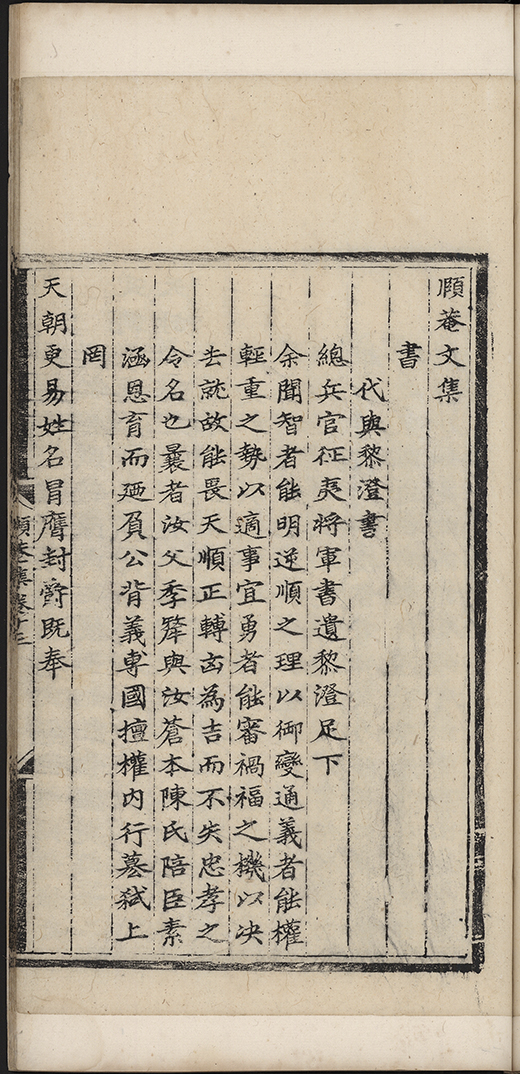 頤菴文集
書
代與黎澄書
總兵官征夷將軍書遺黎澄足下
余聞智者能明逆順之理以御變通義者能權
輕重之勢以適事宜勇者能審禍福之機以决
去就故能畏天順正轉凶為吉而不失忠孝之
令名也曩者汝父季犛與汝蒼本陳氏陪臣素
涵恩育而廼負公背義專國擅權内行簒弑上
罔
天朝更易姓名冒膺封爵既奉
頤菴集卷十三